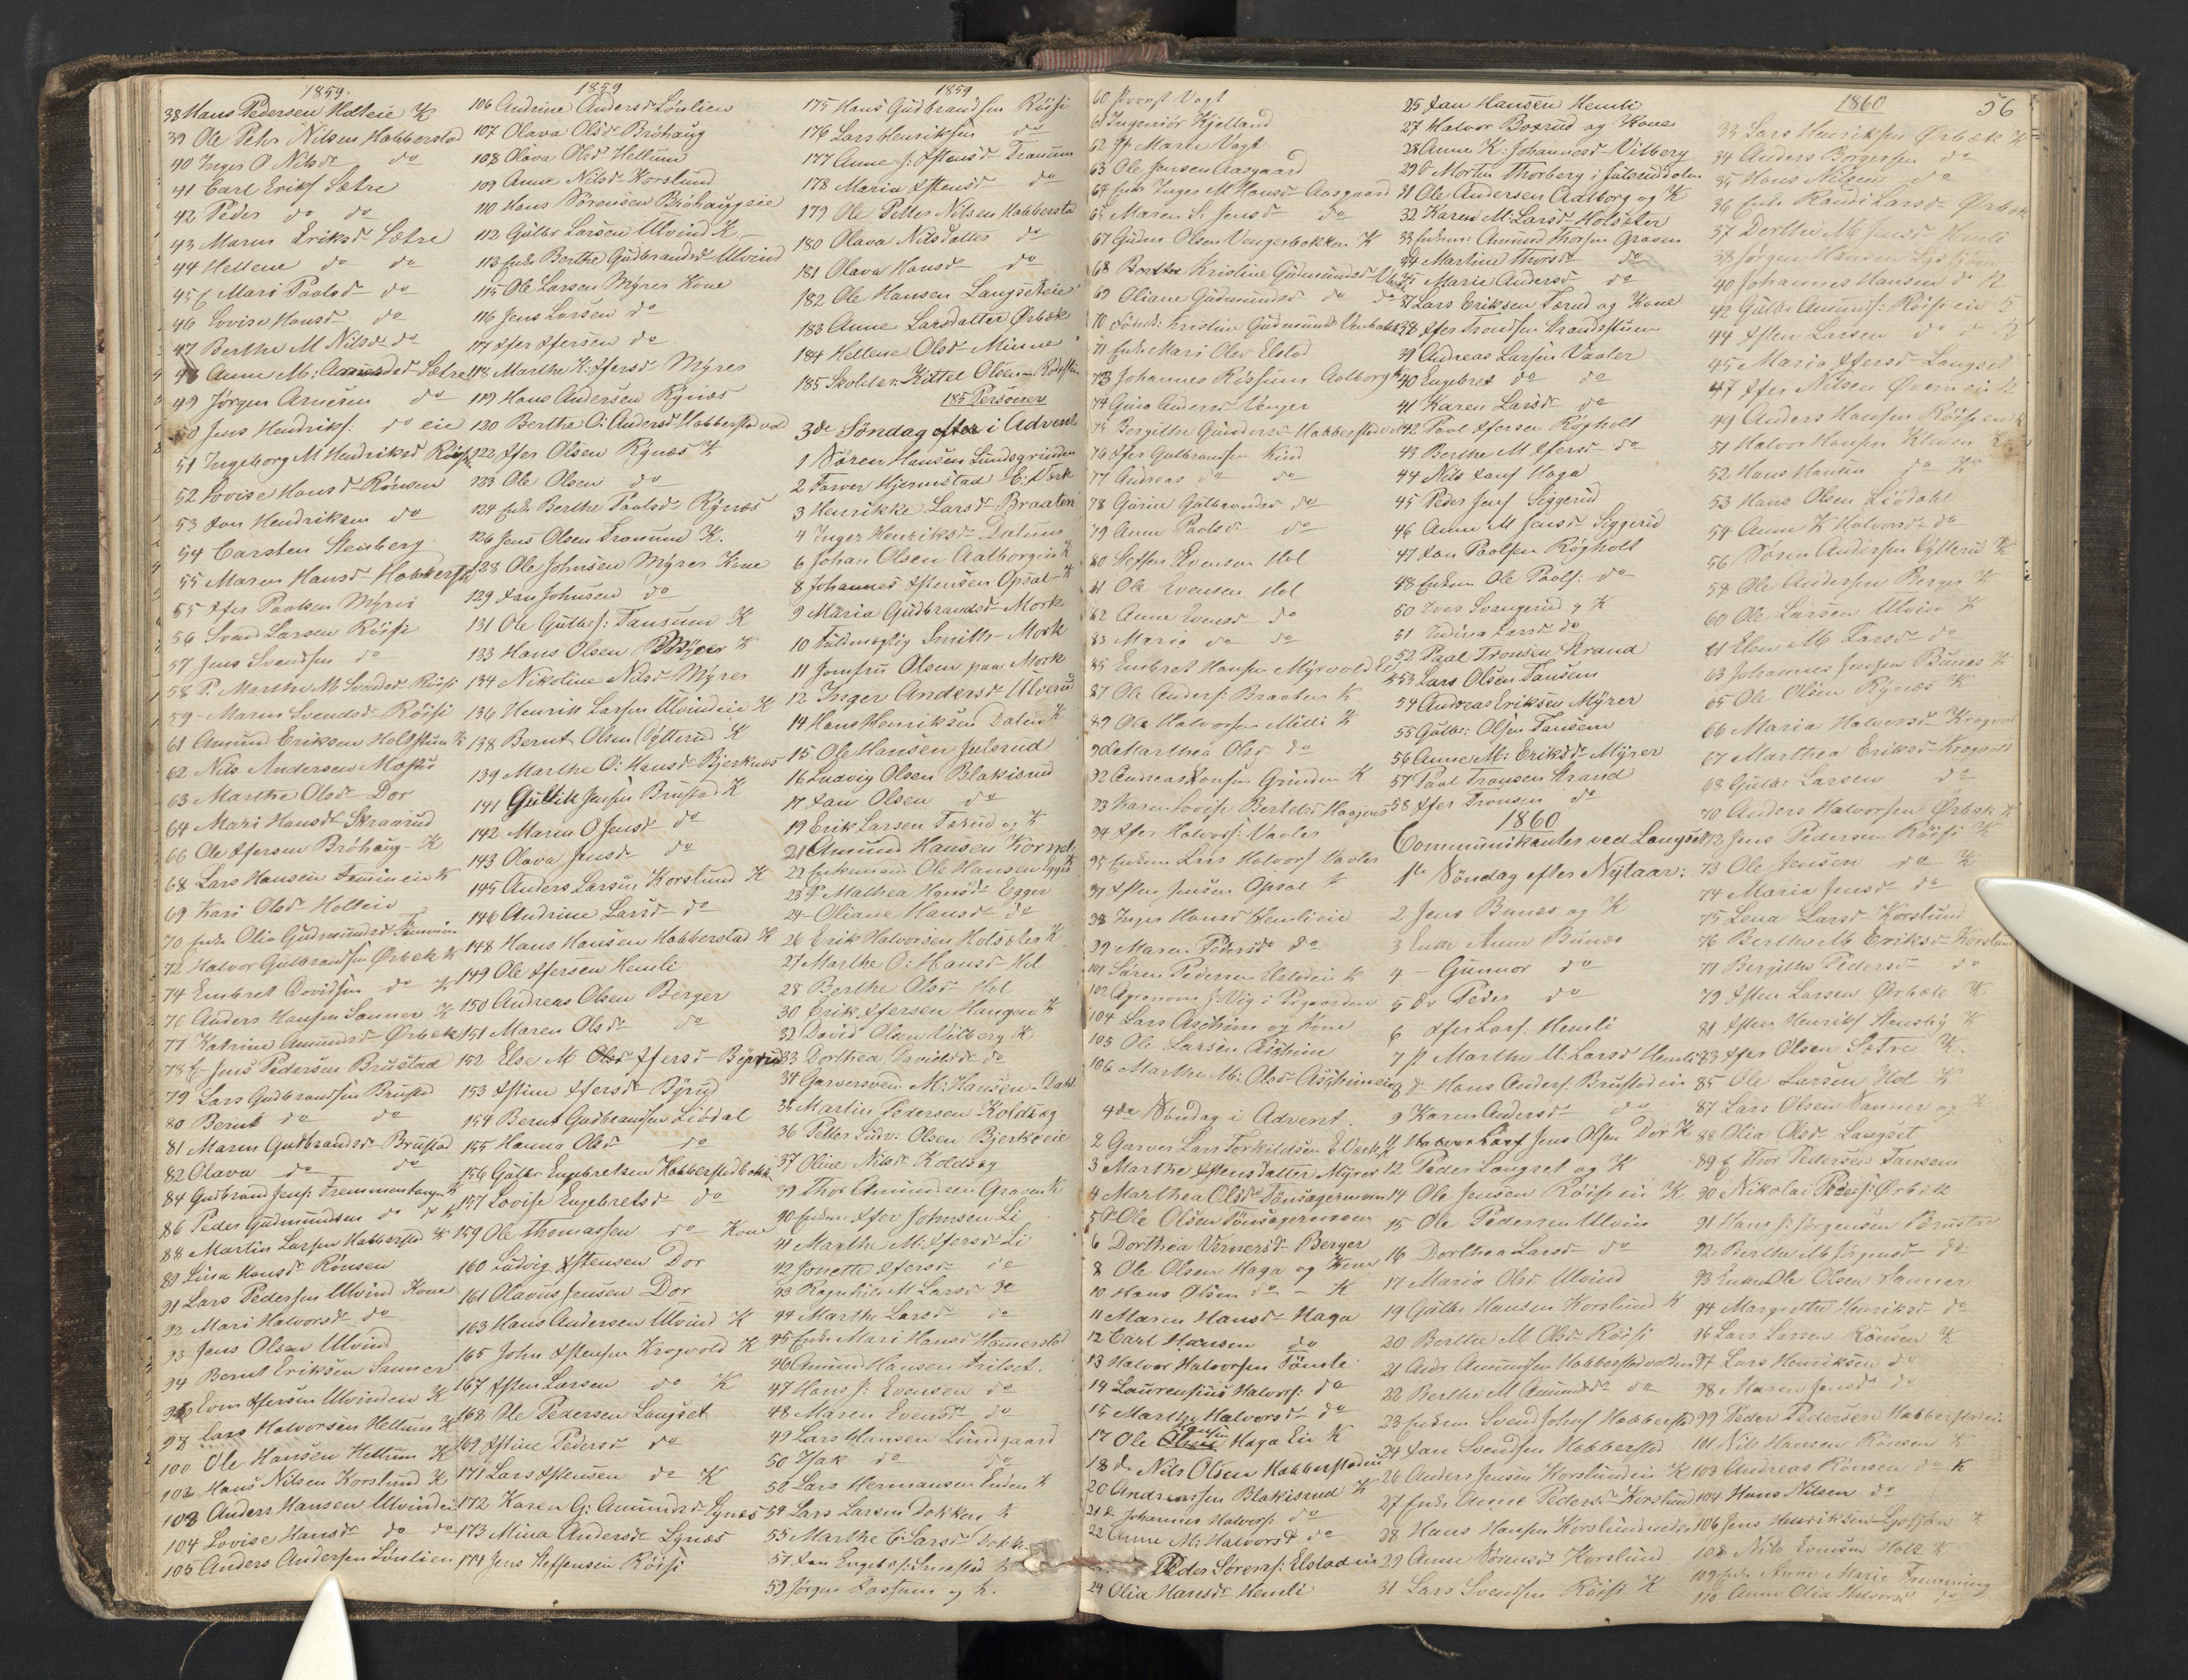 1859.
38 Hans Pedersen Holteie K
39 Ole Pehr Nilsen Habberstad
40 Inger O Nilsdr do
41 Carl Eriks Sætre
42 Peder do do
43 Maren Eriksdr Sætre
44 Hellene do do
45 f Mari Paalsdr do
46 Lovise Hansdr do
47 Berthe M Nilsdr do
48 Anne M: Sætre
49 Jørgen Arnesen do
50 Jens Hendriks: do eie
51 Ingeborg M Hendriksdr
52 Lovise Hansdr Rønsen
53 Jan Hendriksen do
54 Carsten Stenberg
55 Maren Hansdr Habberst
55 Ifer Paalsen Myrer
56 Svend Larsen Röise
57 Jens Svendsen do
58 P. Marthe M Svendsdr Röise
59 Maren Svendsdr Röise
61 Amund Eriksen Holtstuen K
62 Nils Andersen
63 Marthe Olsdr Dor
64 Mari Hansdr Skraarud
66 Ole Ifersen Bröhaug K
68 Lars Hansen eie K
69 Kari Olsdr Holteie
70 Enke Olia Gudmundsdr
72 Halvor Gulbrandsen Ørbek K
74 Embret Davidsen do K
76 Anders Hansen Sanner K
77 Katrine Amundsdr Ørbek
78 f Jens Pedersen Brustad
79 Lars Gudbrandsen Brustad
80 Bernt do do
81 Maren Gudbrandsdr Brustad
82 Olava do do
84 Gudbrand Jens: K
86 Peder Gudmundsen do do K
88 Martin Larsen Habberstad K
89 Lina Hansdr Rönsen
91 Lars Pedersen Ulvind Kone
92 Mari Halvorsdr do
93 Jens Olsen Ulvind
94 Bernt Eriksen Sanner
96 Even Ifersen Ulvindeie K
98 Lars Halvorsen Hellum K
100 Ole Hansen Hellum K
102 Hans Nilsen Korslund K
103 Anders Hansen Ulvindeie
104 Lovise Hansdr do do
105 Anders Andersen Lönlien
1859
106 Andrine Andersdr Lönlien
107 Olava Olsdr Bröhaug
108 Olava Olsdr Hellum
109 Anne Nilsdr Korslund
110 Hans Sørensen Bröhaugeie
112 Gulbr Larsen Ulvind K
113 Enke Berthe Gudbrandsdr Ulvind
115 Ole Larsen Myrer Kone
116 Jens Larsen do
117 Ifer Ifersen do
118 Marthe K: Ifersdr Myrer
119 Hans Andersen Rynæs
120 Berthe O: Andersdr Habberstad
122 Ifer Olsen Rynæs K
123 Ole Olsen do
124 Enke Berthe Paalsdr Rynæs
126 Jens Olsen K.
128 Ole Johnsen Myrer Kone
129 Jan Johnsen do
131 Ole Gulbrs: Tansum K
133 Hans Olsen Myrer K
134 Nikoline Nilsdr Myrer
136 Henrik Larsen Ulvindeie K
138 Bernt Olsen Gytterud K
139 Marthe O: Hansdr Bjerknæs
141 Gullik Jensen Brustad K
142 Maren O Jensdr do
143 Olava Jensdr do
145 Anders Larsen Korslund K
146 Andrine Larsdr do
148 Hans Hansen Habberstad K
149 Ole Ifersen Hemli
150 Andreas Olsen Berger
151 Maren Olsdr do
152 Else M Ifersdr
153 Istine Ifersdr Byrud
154 Bernt Gudbrandsen Liødal
155 Hanna Olsdr do
156 Gulbr Engebretsen Habberstadbakk
157 Lovise Engebretsdr do
159 Ole Thomassen do Kone
160 Ludvig Istensen Dor
161 Olavus Jensen Dor
163 Hans Andersen Ulvind K
165 John Istensen Krogvold K
167 Isten Larsen do K
168 Ole Pedersen Langset
169 Istine Pedersdr do
171 Lars Istensen do K
172 Karen G: Amundsdr Lynæs
173 Mina Andersdr Lynæs
174 Jens Steffensen Röise
1859
175 Hans Gudbrandsen Röise
176 Lars Henriksen do
177 Anne J: Istensdr
178 Maria Istensdr do
179 Ole Petter Nilsen Habbersta
180 Olava Nilsdatter do
181 Olava Hansdr do
182 Ole Hansen Langseteie
183 Anne Larsdatter Ørbæk
184 Hellene Olsdr Minne
185 Skolelær: Kittel Olsen
185 Personer
3de Söndag i Advent
1 Søren Hansen Sundsgrinden
2 Farver Hjermstad E: Værk
3 Henrikke Larsdr Braaten
4 Inger Henriksdr Dalum
6 Johan Olsen Aalborgeie K
8 Johannes Istensen Opsal K
9 Maria Gudbrandsdr Mork
10 Fuldmægtig Smith Mork
11 Jomfru Olsen paa Mork
12 Inger Andersdr
14 Hans Henriksen Dalen K
15 Ole Hansen Julsrud
16 Ludvig Olsen Blakisrud
17 Jan Olsen do
19 Erik Larsen og K
21 Amund Hansen
22 Enkemand Ole Hansen
23 P. Mathea Hansdr Egger
24 Oliane Hansdr do
26 Erik Halvorsen Holsæter K
27 Marthe O: Hansdr Hol
28 Berthe Olsdr Hol
30 Erik Ifersen Haugen K
32 David Olsen Vilberg K
33 Dorthea Davidsdr do
34 Garversvend M: Hansen Dahl
35 Martin Pedersen Koldsøg
36 Petter Ludv: Olsen Bjerkeeie
37 Oline Nilsdr Koldsøg
39 Thor Amundsen Graven K
40 Enkem Ifer Johnsen Li
41 Marthe M: Ifersdr Li
42 Jonette Ifersdr do
43 Ragnhild M Larsdr do
44 Marthe Larsdr do
45 Enke Mari Hansdr Hammerstad
46 Amund Hansen
47 Hans J: Evensen do
48 Maren Evensdr do
49 Lars Hansen Lundgaard
50 Isak do do
52 Lars Hermansen K
54 Lars Larsen Dokken K
55 Marthe E: Larsdr Dokk
57 Jan Engebrs: K
59 Jørgen og K.
60 Provst Vogt
61 Ingeniör Kjelland
62 Fr Marie Vogt
63 Ole Jensen Aasgaard
64 Enke Inger M Hansdr Aasgaard
65 Maren S. Jensdr do
67 Gudm Olsen Vengerbakken K
68 Berthe Kristine Gudmundsdr
69 Oliane Gudmundsdr do do
70 Kristine Gudmundsdr
71 Enke Mari Olsdr Elstad
73 Johannes Rössum Aalborg K
74 Gina Andersdr Venger
75 Bergithe Gundersdr Habberstad
76 Ifer Gulbransen Kind
77 Andreas do do
78 Gurine Gulbrandsdr do
79 Anne Paalsdr do
80 Steffen Evensen Hol
81 Ole Evensen Hol
82 Anne Evensdr do
83 Maria do do
85 Embret Hansen Myrvold
87 Ole Anders: Braaten K
89 Ole Halvorsen Midli K
90 Marthea Olsdr do
92 Andreas Grinden K
93 Karen Lovise Bertelsdr
94 Ifer Halvors: Vaaler
95 Enkem Lars Halvors Vaaler
97 Isten Jensen Opsal K
98 Inger Hansdr Hemlieie
99 Maren Pedersdr do
101 Søren Pedersen Elstadeie K
102 Agronom J: Vig i
104 Lars Aschim og Kone
105 Ole Larsen Aschim
106 Marthe M: Olsdr Aschimeie
4de Söndag i Advent.
2 Garver Lars Torkildsen
3 Marthe Istensdatter Myrer
4 Marthea Olsdr Tönsagermoen
5 Ole Olsen Tönsagermoen
6 Dorthea Vernersdr Berger
8 Ole Olsen Haga og Kone
10 Hans Olsen do K
11 Maren Hansdr Haga
12 Carl Hansen do
13 Halvor Halvorsen Tömte
14 Laurensius Halvors: do
15 Marthe Halvorsdr do
17 Ole Hansen Haga Eie K
18 Nils Olsen Habberstadeie
20 Andreassen Blakisrud K
21 Johannes Halvors: do
22 Anne M: Halvorsdr do
Peder Sörens: Elstadeie
24 Olia Hansdr Hemli
25 Jan Hansen Hemli
27 Halvor Boxrud og Kone
28 Anne K: Johannesdr Vilberg
29 Morten Thorberg i Julsruddalen
31 Ole Andersen Aalborg og K
32 Karen M: Larsdr Holsæter
33 Enkem: Amund Thorsen Graven
34 Martine Thorsdr do
35 Marie Andersdr do
37 Lars Eriksen og Kone
38 Ifer Tronsen Strandstuen
39 Andreas Larsen Vaaler
40 Engebret do do
41 Karen Larsdr do
42 Paal Ifersen Rögholt
43 Berthe M Ifersdr do
44 Nils Jans Haga
45 Peder Jens Seggerud
46 Anne M Jensdr Seggerud
47 Jan Paalsen Rögholt
48 Enkem Ole Paals: do
50 Iver Svangerud og K
51 Indina Larsdr do
52 Paal Tronsen Strand
53 Lars Olsen Tansem
54 Andreas Eriksen Myrer
55 Gulbr: Olsen Tansem
56 Anne M: Eriksdr Myrer
57 Paal Tronsen Strand
58 Ifer Tronsen do
1860
Communikanter ved Langset
1ste Söndag efter Nytaar:
2 Jens Bunæs og K
3 Enke Anne Bunæs
4 - Gunnor do
5 do Peder do
6 Ifer Lars: Hemli
7 p Marthe M: Larsdr Hemli
8 d Hans Anders: Brustadeie
9 Karen Andersdr do
11 Jens Olsen Dor K
12 Peder Langset og K
14 Ole Jensen Röiseeie K
15 Ole Pedersen Ulvin
16 Dorthea Larsdr do
17 Maria Olsdr Ulvind
19 Gulbr Hansen Korslund K
20 Berthe M Olsdr Röise
21 Andr Amundsen Habberstad
22 Berthe M Amundsdr do
23 Enkem Svend Johns Habberstad
24 Jan Svendsen Habberstad
26 Anders Jensen Korslundeie K
27 Enke Anne Pedersdr Korslund
28 Hans Hansen Korslund
29 Anne Sörensdr Korslund
31 Lars Svendsen Röise K
1860
56
33 Lars Henriksen Ørbæk K
34 Anders Borgersen do
35 Hans Nilsen do
36 Enke Randi Larsdr Ørbæk
37 Dorthe M Jensdr Hemli
38 Jørgen Hansen
40 Johannes Hansen do K
42 Gulbr Amunds: Röiseeie K
44 Isten Larsen do do K
45 Maria Ifersdr Langset
47 Ifer Nilsen K
49 Anders Hansen Röiseeie K
51 Halvor Hansen Kleven K
52 Hans Hansen do K
53 Hans Olsen Liødahl
54 Anne K Halvorsdr do
56 Søren Andersen Gytterud K
58 Ole Andersen Berger K
60 Ole Larsen Ulvin K
61 Elen M Larsdr do
63 Johannes Jensen Bunæs K
65 Ole Olsen Rynæs K
66 Maria Halvorsdr Krogvol
67 Marthea Eriksdr Krogvold
68 Gulbr Larsen do
70 Anders Halvorsen Ørbæk K
72 Jens Pedersen Röise K
73 Ole Jensen do K
74 Maria Jensdr do
75 Lena Larsdr Korslund
76 Berthe M Eriksdr Korslund
77 Bergithe Pedersdr do
79 Isten Larsen Ørbæk K
81 Isten Henriks K
83 Ifer Olsen Sætre K.
85 Ole Larsen Hol K
87 Lars Olsen Sanner og K
88 Olia Olsdr Langset
89 f Thor Pedersen Tansem
90 Nikolai Peders: Ørbæk
91 Hans J: Jörgensen Brustad
92 Berthe M Jörgensdr do
93 Enkem Ole Olsen Sanner
94 Margrethe Henriksdr do
96 Lars Larsen Rönsen K
97 Lars Henriksen do
98 Maren Jensdr do
99 Peder Pedersen Habberstadeie
101 Nils Hansen Rönsen K
103 Andreas Rönsen do K
104 Hans Nilsen do
106 Jens Henriksen K
108 Nils Evensen Holt K
109 Enke Anne Marie
110 Anne Olia Halvorsdr do